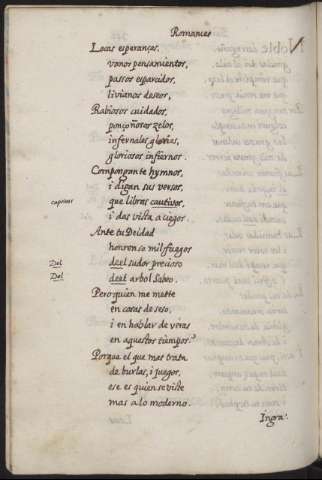 Romances
Locas esperanças,
vanos pensamientos,
passos esparcidos,
livianos deseos,
Rabiosos cuidados,
ponçoñosos zelos,
infernales glorias,
gloriosos infiernos.
Compongante hymnos,
i digan sus versos,
captivos
que libras cautivos,
i das vista a ciegos.
Ante tu Deidad
honrense mil fuegos
Del
deel sudor precioso
Del
deel arbol Sabeo.
Pero quien me mette
en cosas de seso,
i en hablar de veras
en aquestos tiempos?
Porque el que mas trata
de burlas, i juegos,
ese es quien se viste
mas a lo moderno.
Ingra-